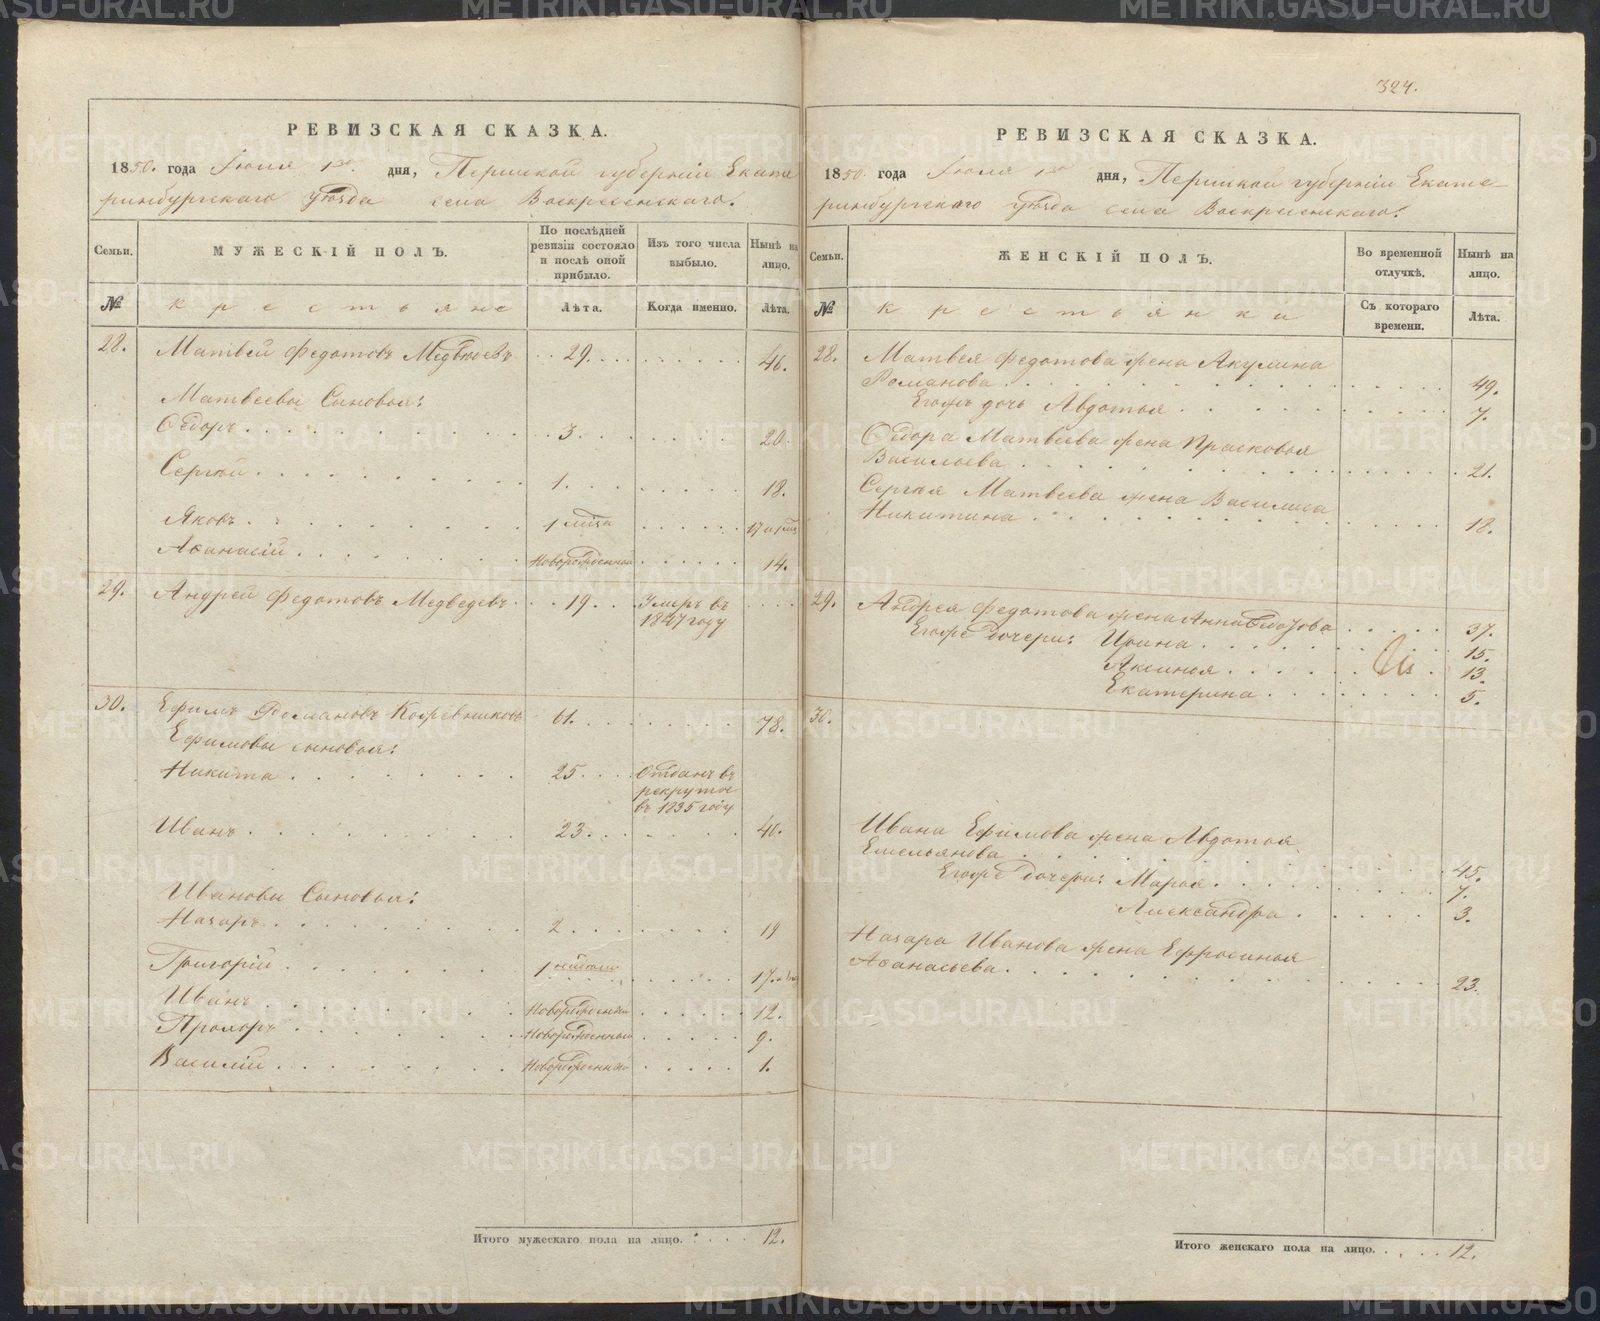 324.
РЕВИЗСКАЯ СКАЗКА.
1850. года Іюля 1го дня, Пермской губерніи Екате
ринбургскаго уѣзда села Воскресенскаго.
Семьи.
МУЖЕСКІЙ ПОЛЪ.
По послѣдней ревизіи состояло и послѣ оной прибыло.
Изъ того числа выбыло.
Нынѣ на лицо.
№
крестьяне
Лѣта.
Когда именно.
Лѣта.
28. Матвей Федотовъ Медведевъ 29. 46.
Матвеевы Сыновья:
Ѳедоръ 3. 20.
Сергѣй 1. 18.
Яковъ 1 17
Аѳанасій Новорожденный 14.
29. Андрей Федотовъ Медведевъ 19. Умеръ въ
1847 году
30. Ефимъ Романовъ Кожевниковъ 61. 78.
Ефимовы сыновья:
Никита 25. Отданъ въ
рекруты
въ 1835 году
Иванъ 23. 40.
Ивановы Сыновья:
Назаръ 2. 19
Григорій 1 недели 17
Иванъ Новорожденный 12.
Прохоръ Новорожденный 9.
Василій Новорожденный 1.
Итого мужескаго пола на лицо. 12.
РЕВИЗСКАЯ СКАЗКА.
1850 года Іюля 1го дня, Пермской губерніи Екате-
ринбургскаго уѣзда села Воскресенскаго.
Семьи.
ЖЕНСКІЙ ПОЛЪ.
Во временной отлучкѣ.
Нынѣ на лицо.
№
крестьянки
Съ котораго времени.
Лѣта.
28. Матвея Федотова жена Акулина
Романова 49.
Егожъ дочь Авдотья 7.
Ѳедора Матвеева жена Прасковья
Васильева 21.
Сергея Матвеева жена Василиса
Никитина 18.
29. Андрея Федотова жена Анна 37.
Егоже дочери: Ирина 15.
Аксинья 13.
Екатерина 5.
30.
Ивана Ефимова жена Авдотья
Емельянова 45.
Егоже дочери: Марья 7.
Александра 3.
Назара Иванова жена Ефросинья
Аѳанасьева 23.
Итого женскаго пола на лицо. 12.
METRIKI.GASO-URAL.RU